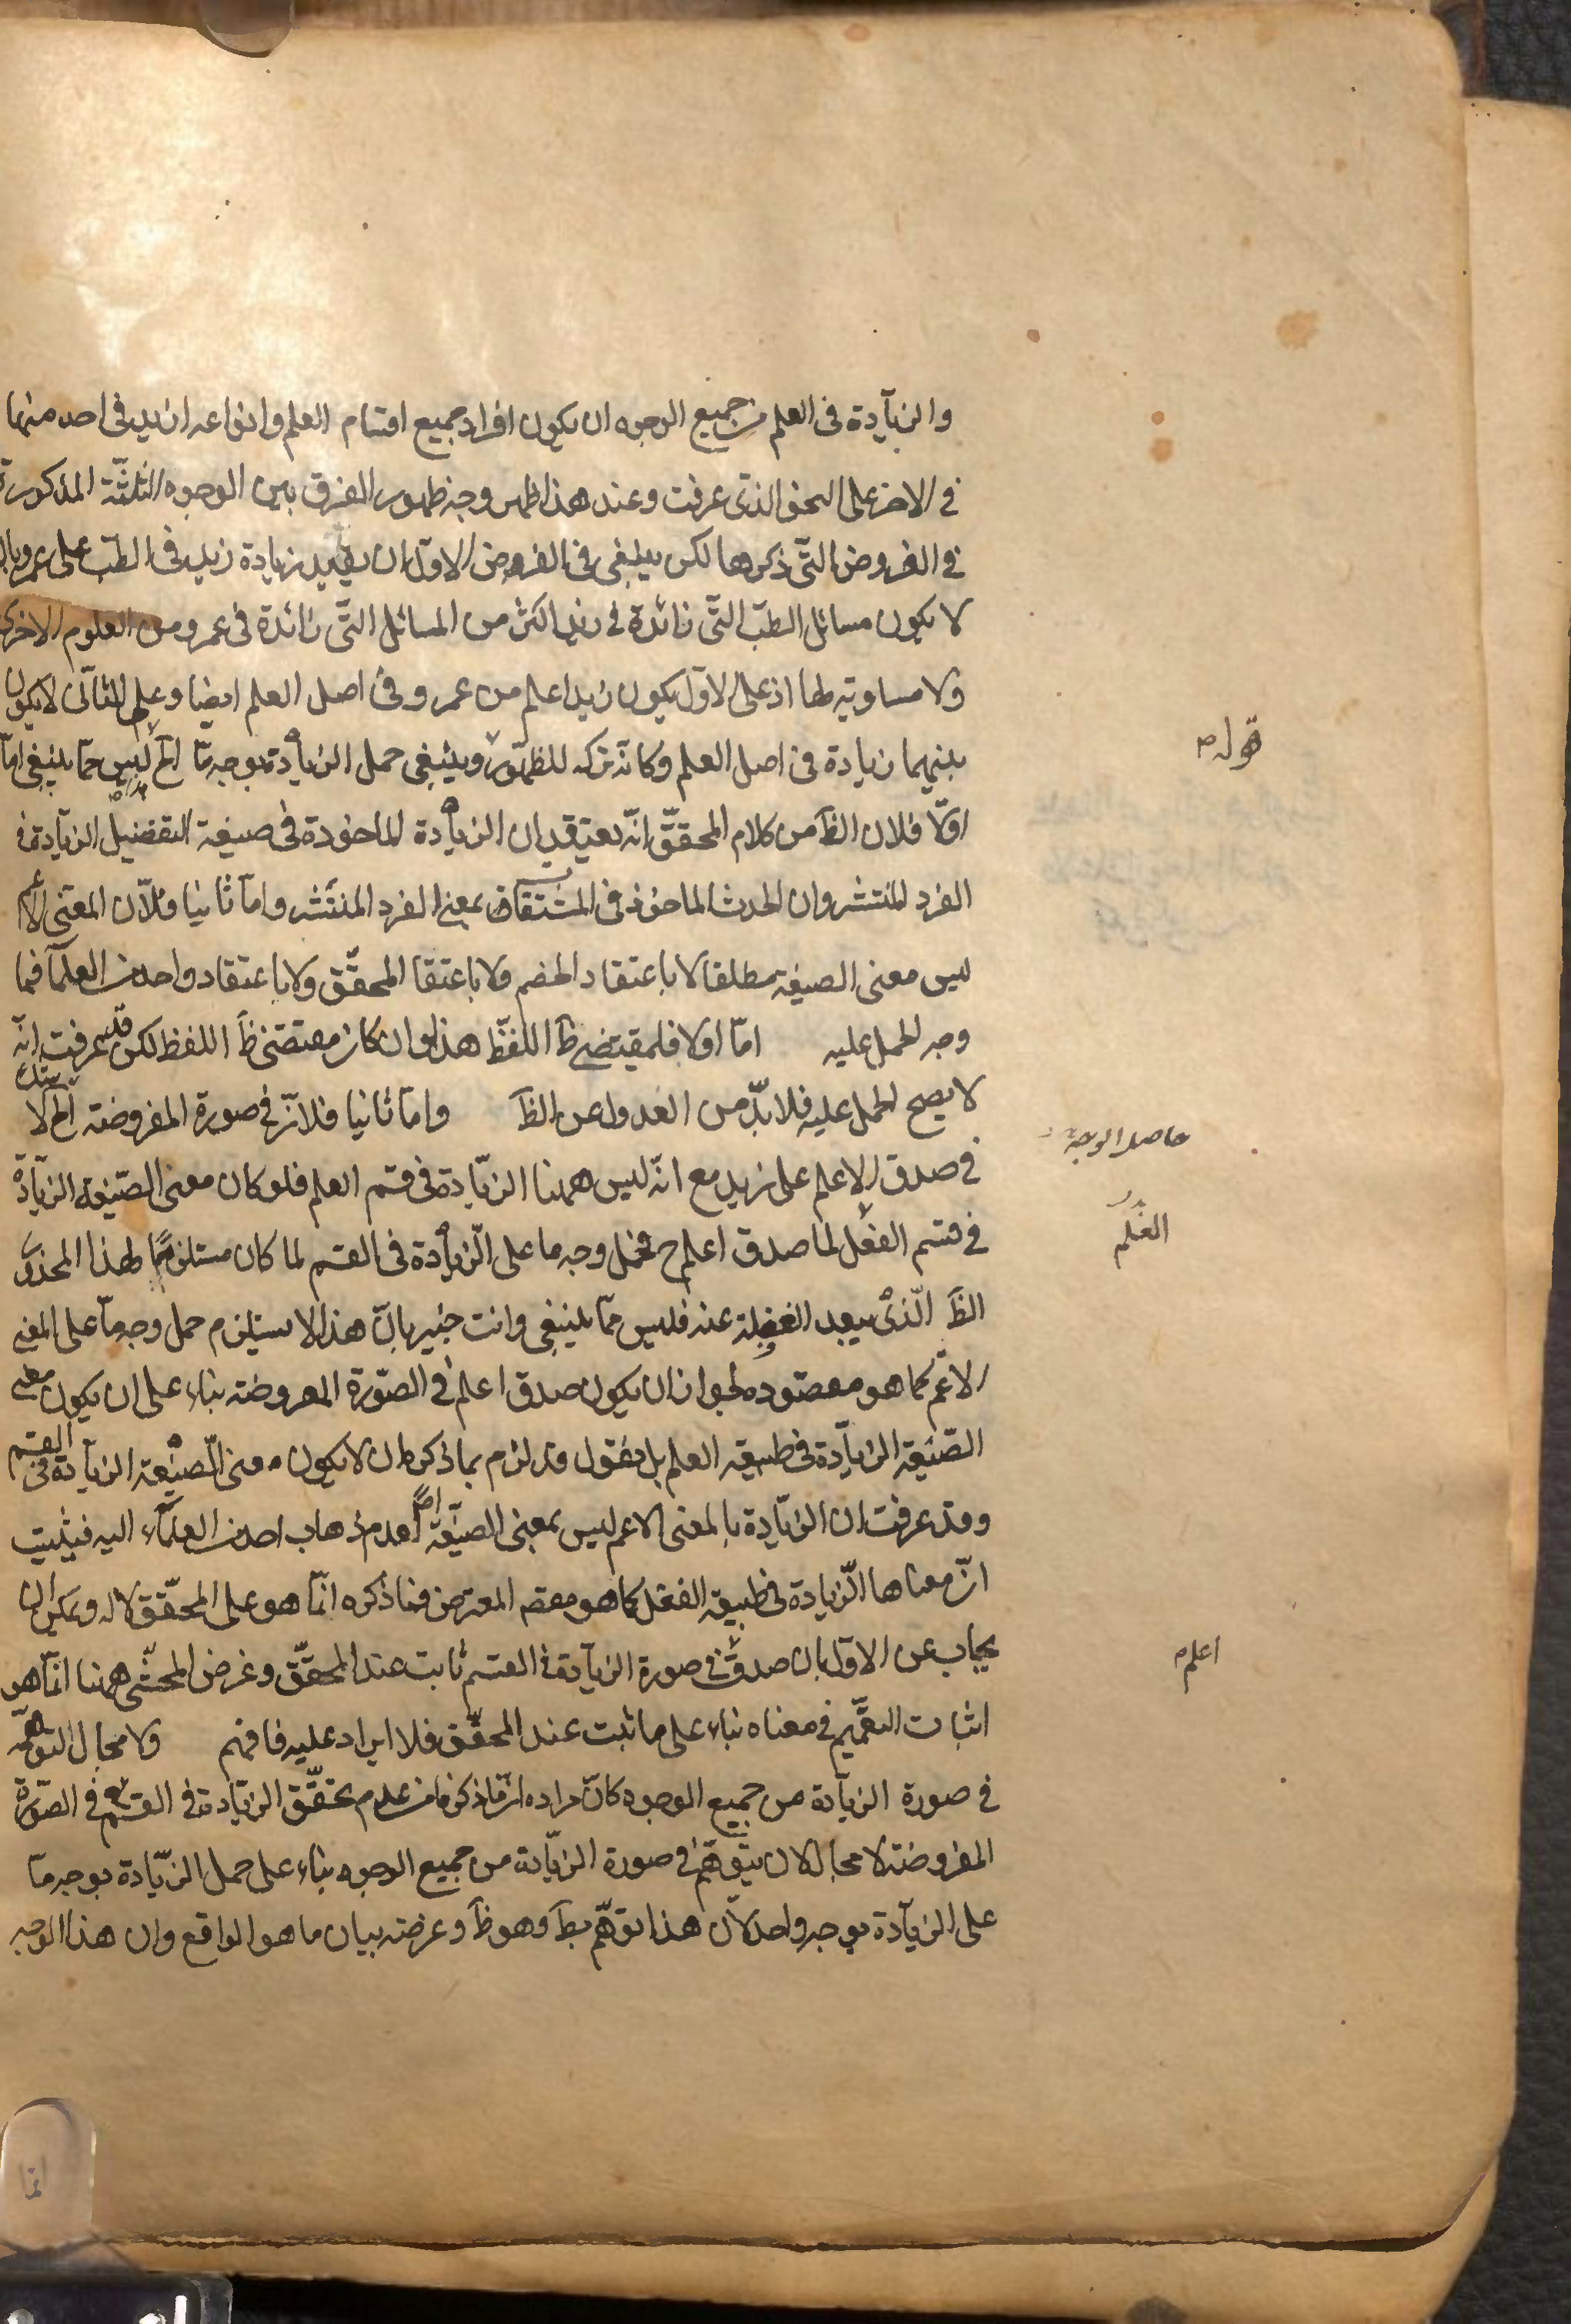 والزيادة فى العلم من جميع الوجوه ان يكون افراد جميع اقسام العلم وانواعه ازيد فى احد منهما
فى الاخر على النحو الذى عرفت وعند هذا ظهر وجه ظهور الفرق بين الوجوه الثلثة المذكورة
فى الفروض التى ذكرها لكن ينبغى فى الفرض الاول ان يقيد زيادة زيد فى الطب على عمرو بان
لا يكون مسائل الطب التى زائدة فى زيد اكثر من المسائل التى زائدة فى عمرو من العلوم الاخرى
ولا مساوية لها اذ على الاول يكون زيد اعلم من عمرو فى اصل العلم ايضا وعلى الثانى لا يكون
بينهما زيادة فى اصل العلم وكانه تركه للظهور وينبغى حمل الزيادة بوجه ما الخ ليس مما ينبغى اما
قوله
اولا فلان الظ من كلام المحقق انه يعتقد ان الزيادة الماخوذة فى صيغة التفضيل الزيادة فى
الفرد المنتشر وان الحدث الماخوذ فى المشتقات بمعنى الفرد المنتشر واما ثانيا فلان المعنى الاعم
ليس معنى الصيغة مطلقا لا باعتقاد الخصم ولا باعتقا المحقق ولا باعتقاد واحد من العلما فما
وجه الحمل عليه اما اولا فلمقتضى ظ اللفظ هذا وان كان مقتضى ظ اللفظ لكن قد عرفت انه
لا يصح الحمل عليه فلا بد من العدول عن الظ واما ثانيا فلانه فى صورة المفروضة الخ لا
حاصل الوجه
فى صدق الاعلم على زيد مع انه ليس ههنا الزيادة فى قسم العلم فلو كان معنى الصيغة الزيادة
العلم
فى قسم الفعل لما صدق اعلم ح فحمل وجه ما على الزيادة فى القسم لما كان مستلزما لهذا المحذور
الظ الذى يبعد الغفلة عنه فليس مما ينبغى وانت خبير بان هذا لا يستلزم حمل وجه ما على المعنى
الاعم كما هو مقصوده لجواز ان يكون صدق اعلم فى الصورة المفروضة بناء على ان يكون معنى
الصيغة الزيادة فى طبيعة العلم بل نقول قد لزم بما ذكر ان لا يكون معنى الصيغة الزيادة فى القسم
وقد عرفت ان الزيادة بالمعنى الاعم ليس بمعنى الصيغة اصلا لعدم ذهاب احد من العلماء اليه فيثبت
ان معناها الزيادة فى طبيعة الفعل كما هو مقصد المعترض فما ذكره انما هو على المحقق لا له ويمكن ان
يجاب عن الاول بان صدق فى صورة الزيادة فى القسم ثابت عند المحقق وغرض المحشى ههنا انما هو
اعلم
اثبات التعميم فى معناه بناء على ما ثبت عند المحقق فلا ايراد عليه فافهم ولا مجال التوهمه
فى صورة الزيادة من جميع الوجوه كان مراده ان ما ذكرنا من عدم تحقق الزيادة فى القسم فى الصورة
المفروضة لا مجال لان يتوهم فى صورة الزيادة من جميع الوجوه بناء على حمل الزيادة بوجه ما
على الزيادة بوجه واحد لان هذا توهم بط وهو ظ وغرضه بيان ما هو الواقع وان هذا الوجه
انما